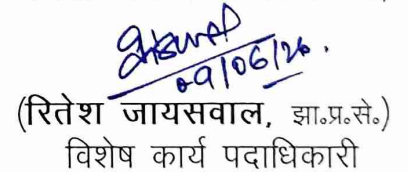 09/06/26.
(रितेश जायसवाल, झा०प्र०से०)
विशेष कार्य पदाधिकारी